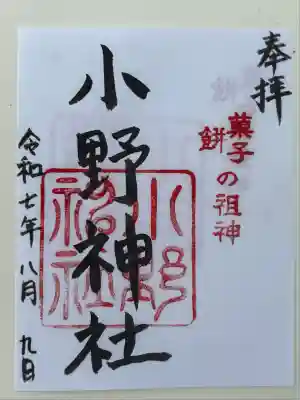 奉拝
菓子
餅 の祖神
小野神社
小野
神社
令和七年八月九日